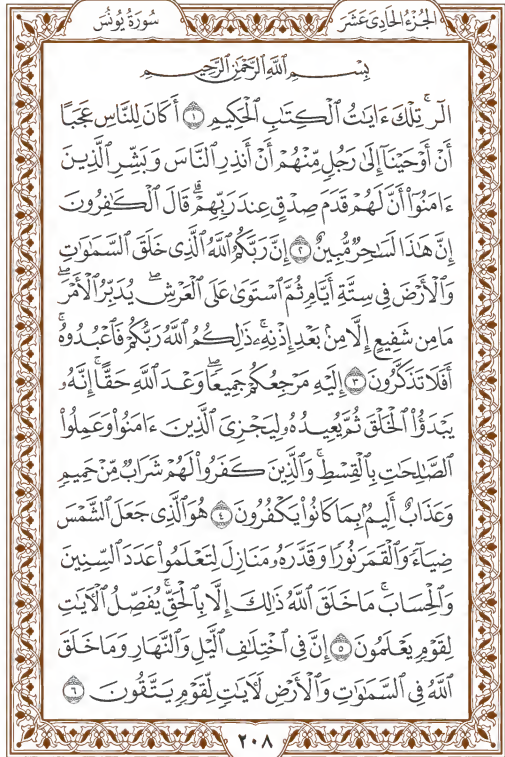 الجزء الحادي عشر
سورة يونس
بِسۡمِ ٱللَّهِ ٱلرَّحۡمَٰنِ ٱلرَّحِيمِ
الٓرۚ تِلۡكَ ءَايَٰتُ ٱلۡكِتَٰبِ ٱلۡحَكِيمِ ١ أَكَانَ لِلنَّاسِ عَجَبًا
أَنۡ أَوۡحَيۡنَآ إِلَىٰ رَجُلٖ مِّنۡهُمۡ أَنۡ أَنذِرِ ٱلنَّاسَ وَبَشِّرِ ٱلَّذِينَ
ءَامَنُوٓاْ أَنَّ لَهُمۡ قَدَمَ صِدۡقٍ عِندَ رَبِّهِمۡۗ قَالَ ٱلۡكَٰفِرُونَ
إِنَّ هَٰذَا لَسَٰحِرٞ مُّبِينٌ ٢ إِنَّ رَبَّكُمُ ٱللَّهُ ٱلَّذِي خَلَقَ ٱلسَّمَٰوَٰتِ
وَٱلۡأَرۡضَ فِي سِتَّةِ أَيَّامٖ ثُمَّ ٱسۡتَوَىٰ عَلَى ٱلۡعَرۡشِۖ يُدَبِّرُ ٱلۡأَمۡرَۖ
مَا مِن شَفِيعٍ إِلَّا مِنۢ بَعۡدِ إِذۡنِهِۦۚ ذَٰلِكُمُ ٱللَّهُ رَبُّكُمۡ فَٱعۡبُدُوهُۚ
أَفَلَا تَذَكَّرُونَ ٣ إِلَيۡهِ مَرۡجِعُكُمۡ جَمِيعٗاۖ وَعۡدَ ٱللَّهِ حَقًّاۚ إِنَّهُۥ
يَبۡدَؤُاْ ٱلۡخَلۡقَ ثُمَّ يُعِيدُهُۥ لِيَجۡزِيَ ٱلَّذِينَ ءَامَنُواْ وَعَمِلُواْ
ٱلصَّٰلِحَٰتِ بِٱلۡقِسۡطِۚ وَٱلَّذِينَ كَفَرُواْ لَهُمۡ شَرَابٞ مِّنۡ حَمِيمٖ
وَعَذَابٌ أَلِيمُۢ بِمَا كَانُواْ يَكۡفُرُونَ ٤ هُوَ ٱلَّذِي جَعَلَ ٱلشَّمۡسَ
ضِيَآءٗ وَٱلۡقَمَرَ نُورٗا وَقَدَّرَهُۥ مَنَازِلَ لِتَعۡلَمُواْ عَدَدَ ٱلسِّنِينَ
وَٱلۡحِسَابَۚ مَا خَلَقَ ٱللَّهُ ذَٰلِكَ إِلَّا بِٱلۡحَقِّۚ يُفَصِّلُ ٱلۡأٓيَٰتِ
لِقَوۡمٖ يَعۡلَمُونَ ٥ إِنَّ فِي ٱخۡتِلَٰفِ ٱلَّيۡلِ وَٱلنَّهَارِ وَمَا خَلَقَ
ٱللَّهُ فِي ٱلسَّمَٰوَٰتِ وَٱلۡأَرۡضِ لَأٓيَٰتٖ لِّقَوۡمٖ يَتَّقُونَ ٦
٢٠٨